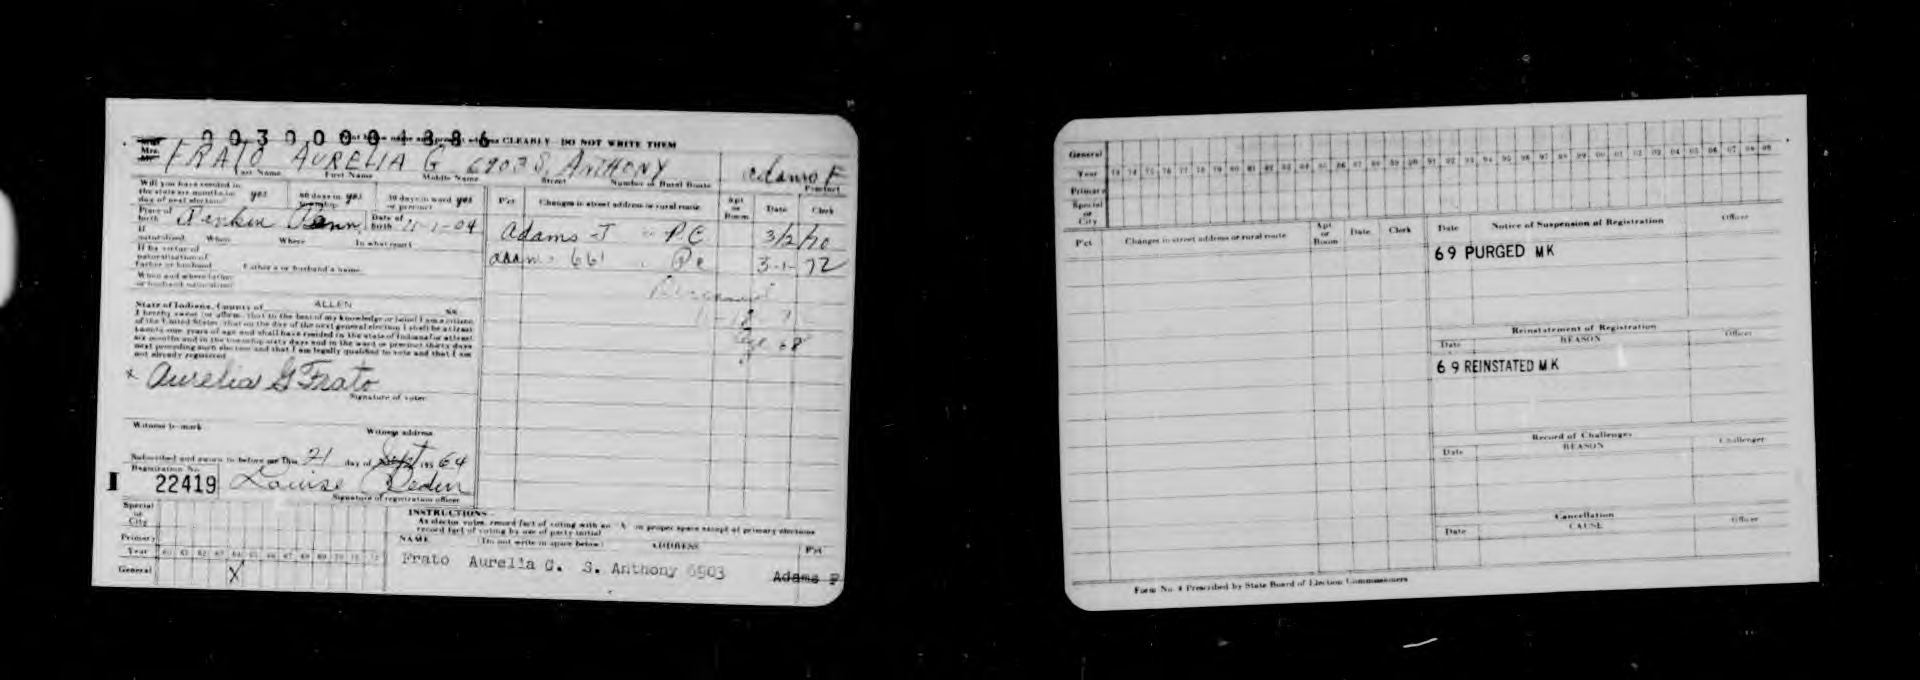 0030000 4386
Print below name and present address CLEARLY - DO NOT WRITE THEM
Mrs. FRATO AURELIA G 6903 S. ANTHONY Adams F
Last Name First Name Middle Name Street Number or Rural Route Precinct
Will you have resided in the state six months on day of next election? yes 60 days in township yes 30 days in ward or precinct yes
Place of birth Penn. Date of birth 11-1-04
If naturalized When Where In what court
If by virtue of naturalization of father or husband Father's or husband's name
When and where father or husband naturalized
State of Indiana, County of ALLEN SS
I hereby swear (or affirm) that to the best of my knowledge or belief I am a citizen
of the United States, that on the day of the next general election I shall be at least
twenty-one years of age and shall have resided in the state of Indiana for at least
six months and in the township sixty days and in the ward or precinct thirty days
next preceding such election and that I am legally qualified to vote and that I am
not already registered
x Aurelia G Frato
Signature of voter
Witness to mark Witness address
Subscribed and sworn to before me This 21 day of Sept 1964
Registration No.
I 22419 Louise
Signature of registration officer
Special or City
Primary
Year 60 61 62 63 64 65 66 67 68 69 70 71 72
General X
P'ct Changes in street address or rural route Apt or Room Date Clerk
Adams J PC 3/2/70
Adams 661 PC 3-1-72
INSTRUCTIONS
As elector votes, record fact of voting with an X in proper space except at primary elections
record fact of voting by use of party initial
NAME (Do not write in space below) ADDRESS P'ct
Frato Aurelia G. S. Anthony 6903 Adams F
General
Year 73 74 75 76 77 78 79 80 81 82 83 84 85 86 87 88 89 90 91 92 93 94 95 96 97 98 99 00 01 02 03 04 05 06 07 08 09
Primary
Special or City
P'ct Changes in street address or rural route Apt or Room Date Clerk
Date Notice of Suspension of Registration Officer
69 PURGED MK
Reinstatement of Registration
Date REASON Officer
69 REINSTATED MK
Record of Challenges
Date REASON Challenger
Cancellation
Date CAUSE Officer
Form No. 4 Prescribed by State Board of Election Commissioners